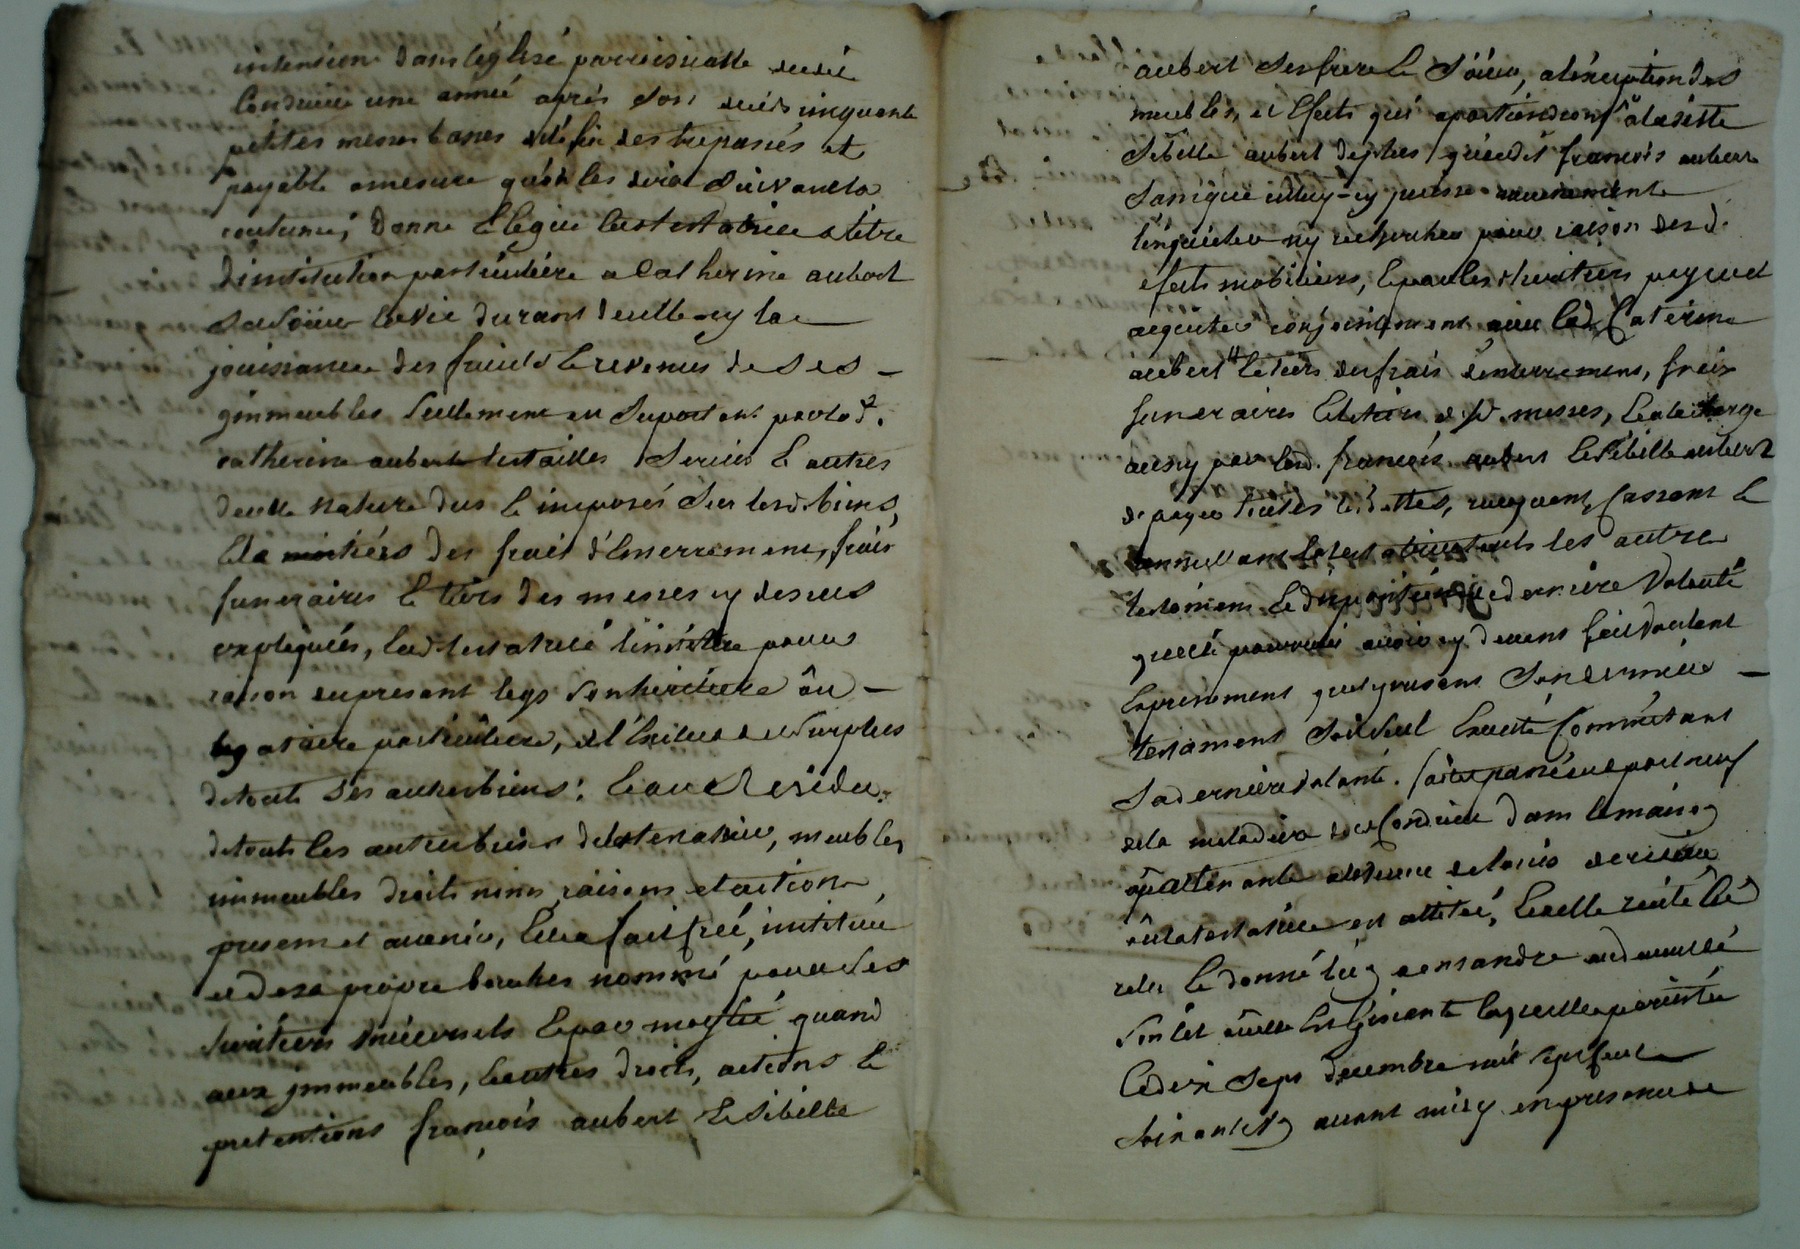 intension dans leglize parroissialle dudit
Conduire une année aprés son decés cinquante
petites messes basses de la fin des trepassés et
payable amesure quon les dira Suivant la
coutume; Donne & legue ladtestatrice a titre
dinstitution particuliere a Catherine aubert
Sa Soeur la vie durant d'icelle-cy la
jouissance des fruits & revenus de ses
ymmeubles Seullement en Suportant par lad.
catherine aubert les tailles Servis & autres
de cette nature dus & imposés Sur lesd. biens,
& la moitiés des frais d'enterrement, frais
funeraires & tiers des messes cy dessus
expliqués, lad testatrice l'instituë pour
raison du present legs son heritiere ou
legataire particuliere, et l'exclue du Surplus
de touts Ses autres biens; & au Residu
de touts les autres biens de la testatrice, meubles
immeubles droits noms raisons et actions
presents et avenir, Elle a fait & créé, institué
et de sa propre bouche nommé pour ses
heritiers universels & par moytié quand
aux ymmeubles, & autres droits, actions &
pretentions françois aubert & Sibille
aubert Ses frere & Soeur, alexeption des
meubles, et Efects qui apartiendront a ladite
Sibille aubert de plus qu'audit françois aubert
Sans que celluy-cy puisse aucunement
l'inquieter ny rechercher pour raison desd.
efects mobiliers, & par les heritiers payer et
aquiter conjointement avec lad. Caterine
aubert le tiers des frais d'enterrement, frais
funeraires & le tiers desd. messes, & a la charge
aussy par led. françois aubert & Sibille aubert
de payer toutes les dettes, revoquant, cassant &
annullant la testatrice touts les autres
testamens & dispositions de derniere Volonté
quelle pourroit avoir cy devant fait voulant
Expressement que le present Son dernier
testament soit seul Executé Comme etant
Sa derniere volonté. fait & passé
de la maladiere de Conduire dans la maison
ou la testatrice est alittée, & a elle recité &
relu & donné lieu d'entendre
Son lit ou elle Est Gisante laquelle a persisté
Ce dix Sept decembre mil sept cent
Soixante avant midy en presence de